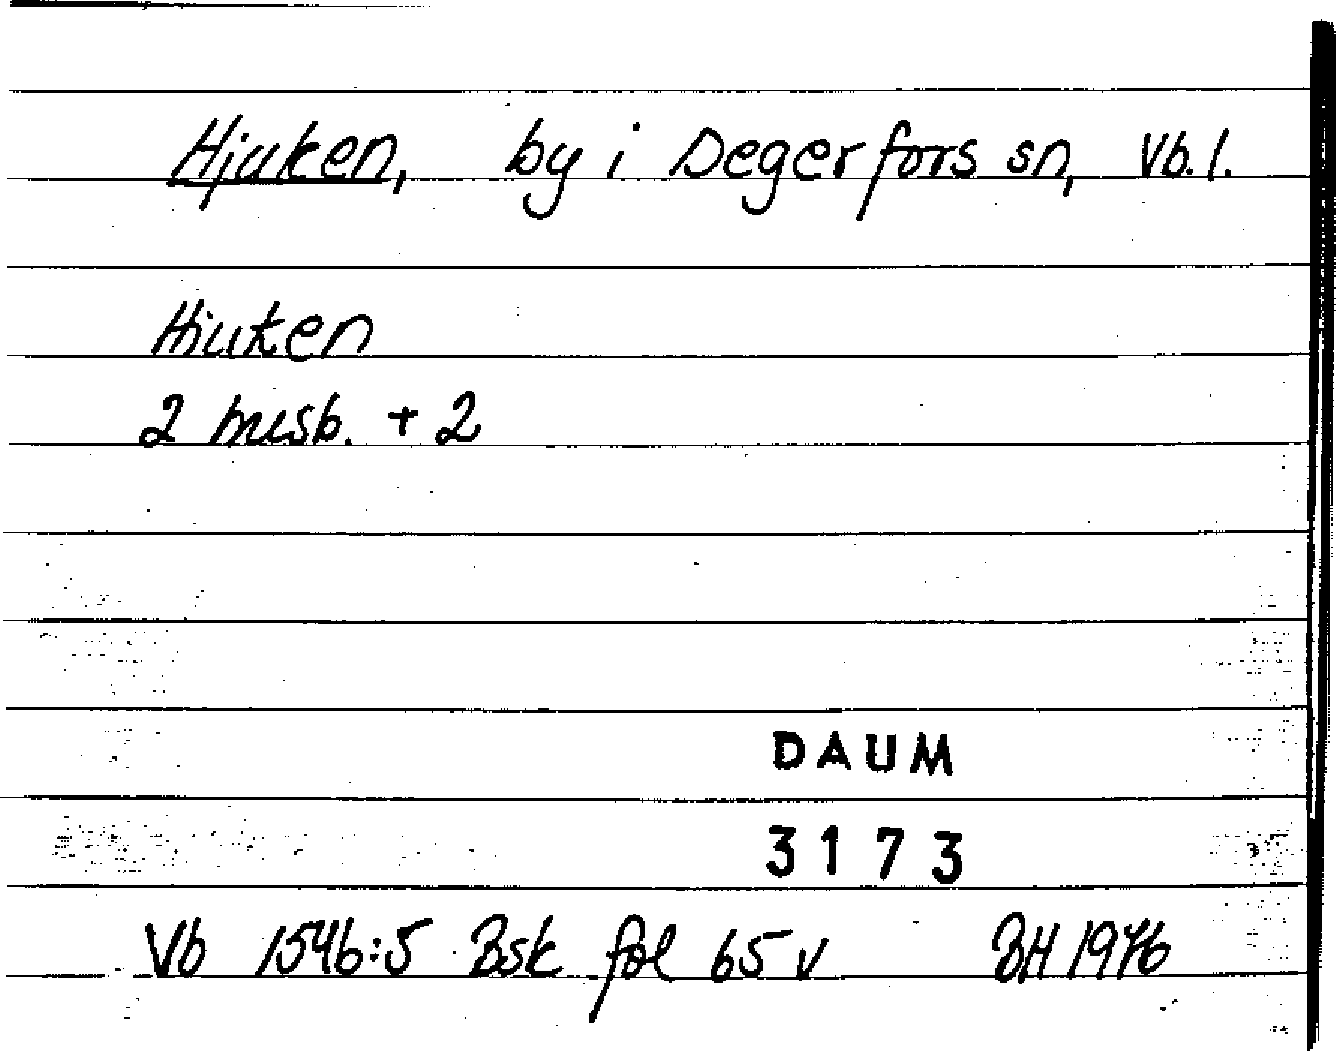 Hjuken, by i Degerfors sn, Vb. l.
Hiuken
2 husb. + 2
DAUM
3173
Vb 1546:5 Bsk fol 65 v BH 1976